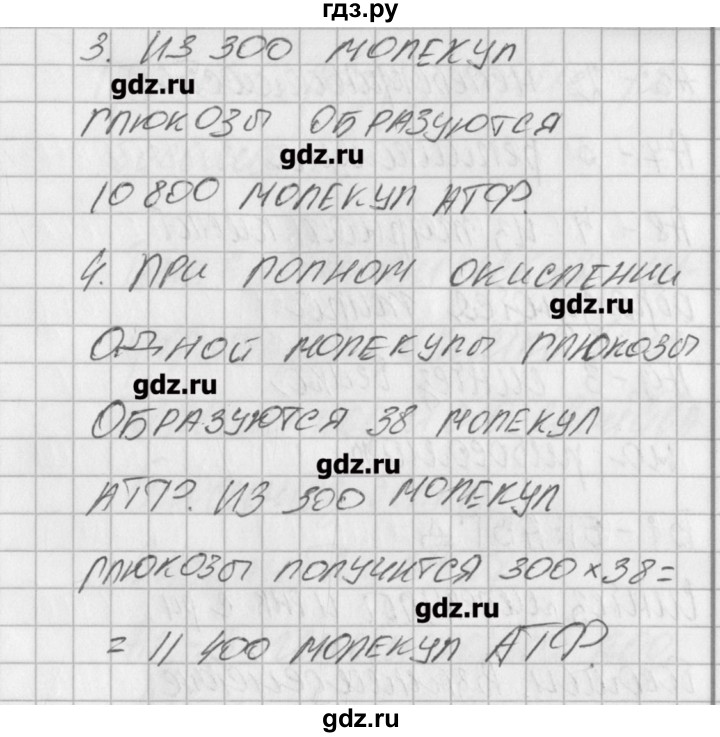 гдз.ру
3. ИЗ 300 МОЛЕКУЛ
gdz.ru
ГЛЮКОЗЫ ОБРАЗУЮТСЯ
gdz.ru
10 800 МОЛЕКУЛ АТФ.
4. ПРИ ПОЛНОМ ОКИСЛЕНИИ
gdz.ru
ОДНОЙ МОЛЕКУЛЫ ГЛЮКОЗЫ
gdz.ru
ОБРАЗУЮТСЯ 38 МОЛЕКУЛ
gdz.ru
АТФ. ИЗ 300 МОЛЕКУЛ
ГЛЮКОЗЫ ПОЛУЧИТСЯ 300×38=
gdz.ru
= 11 400 МОЛЕКУЛ АТФ.
gdz.ru